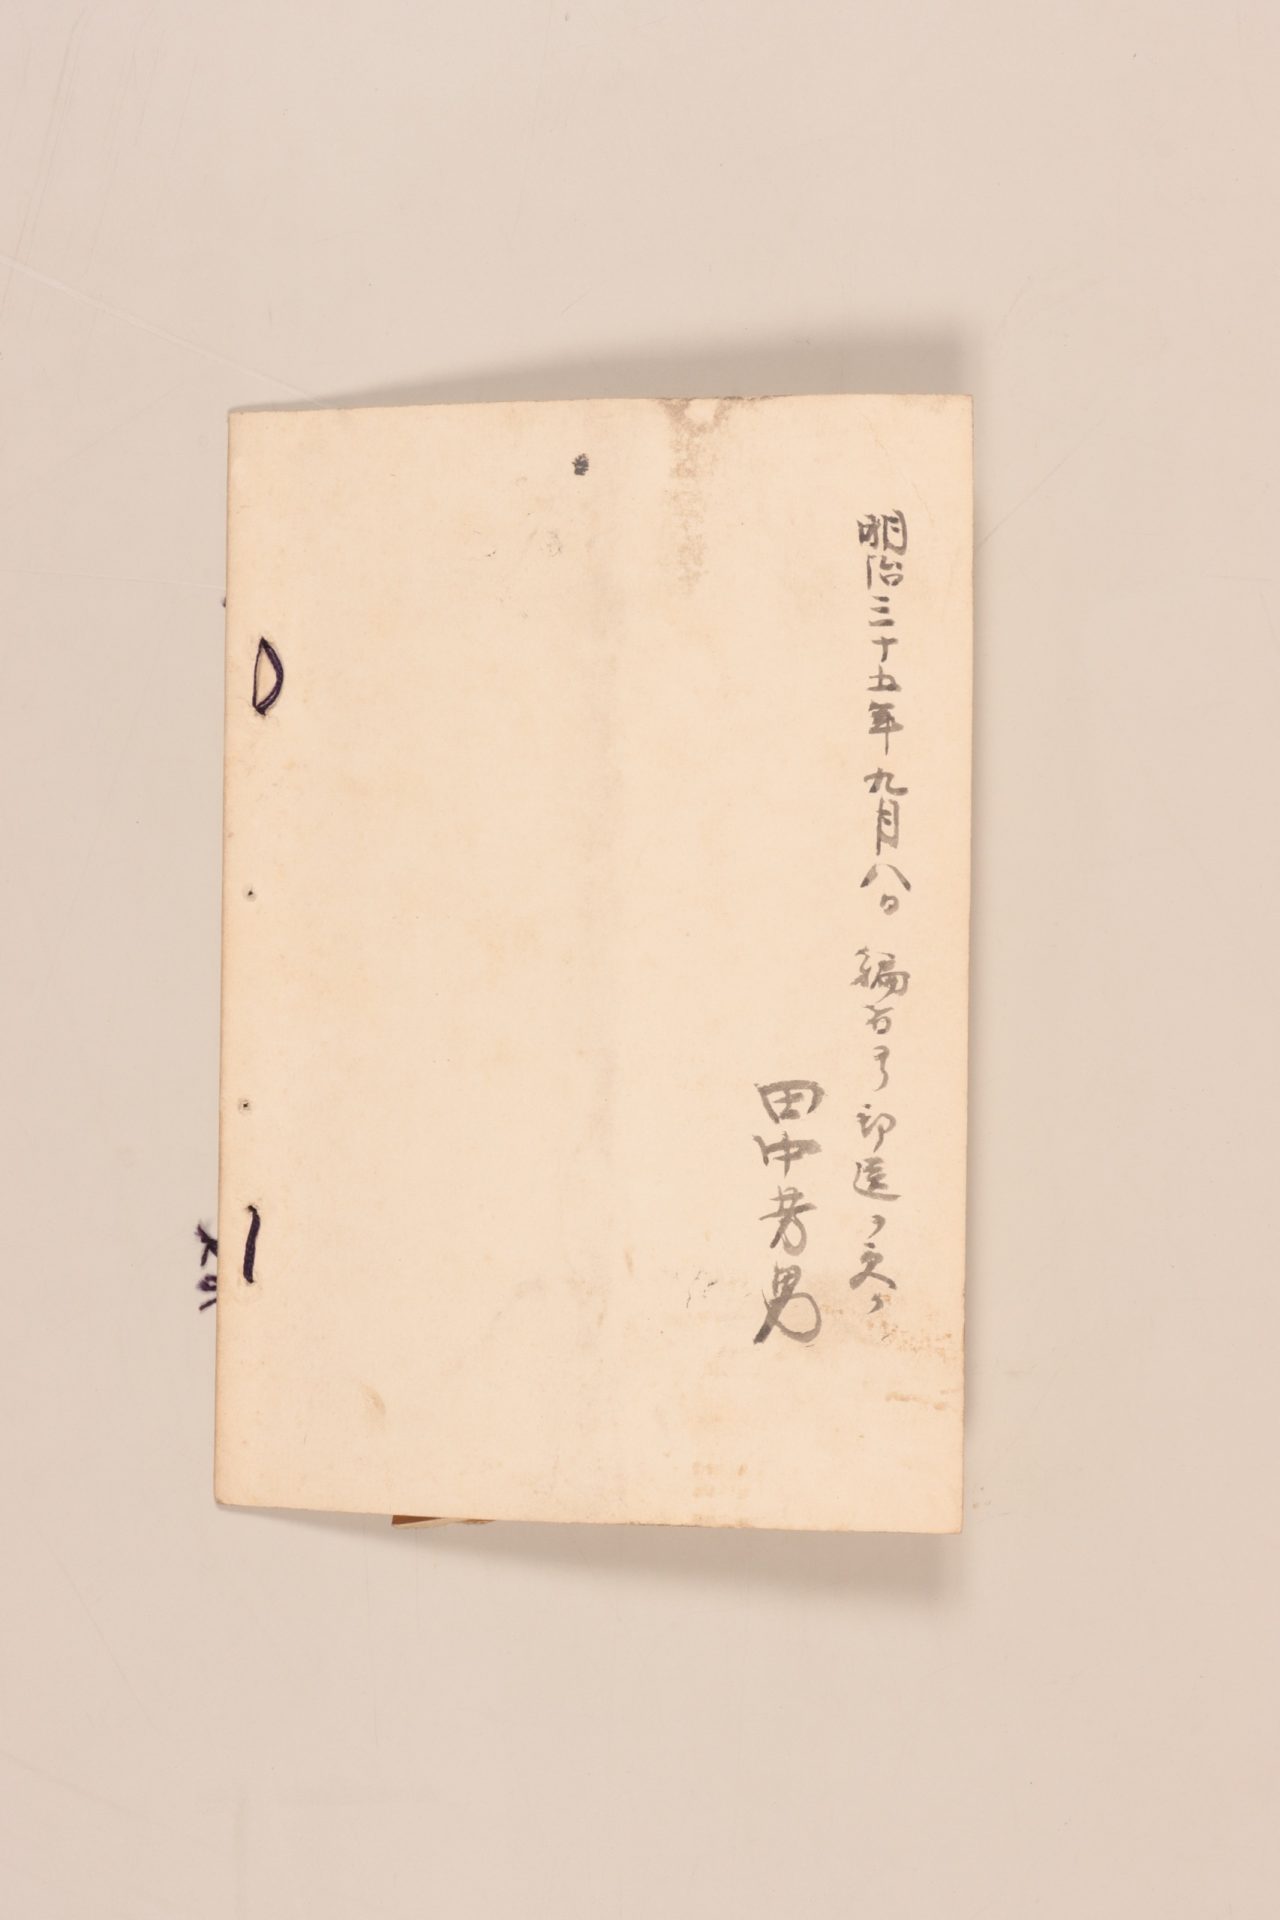 明治三十五年九月八日 編者ヨリ郵送ヲ受ク
田中芳男